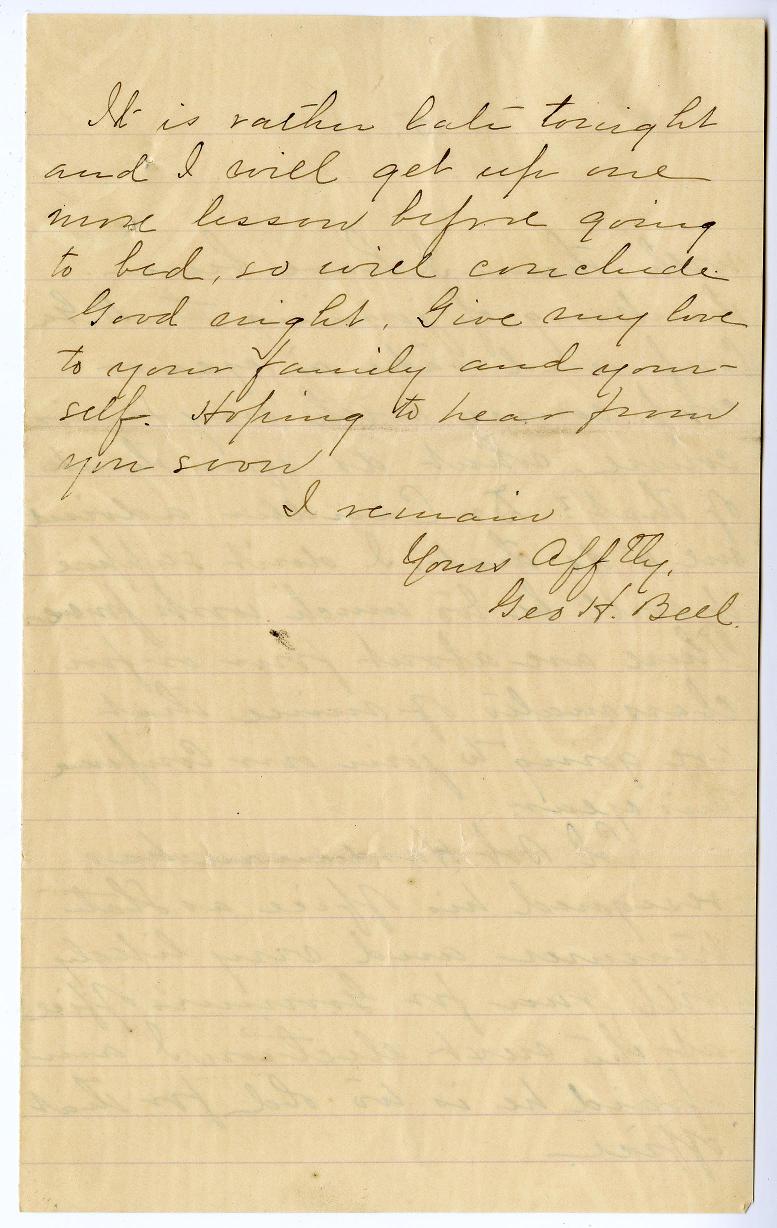 It is rather late tonight
and I will get up one
more lesson before going
to bed, so will conclude.
Good night. Give my love
to your family and your-
self. Hoping to hear from
you soon
I remain
Yours Afftly,
Geo H. Bell.